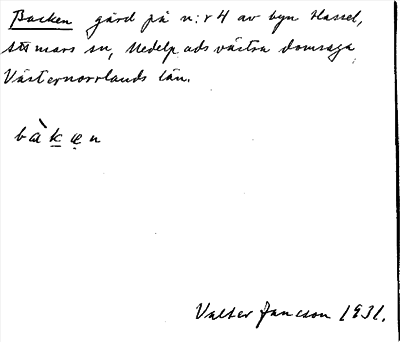 Backen gård på n:r 4 av byn Hassel,
Attmars sn, Medelpads västra domsaga,
Västernorrlands län.
bàk̲ẹn
Valter Jansson 1931.